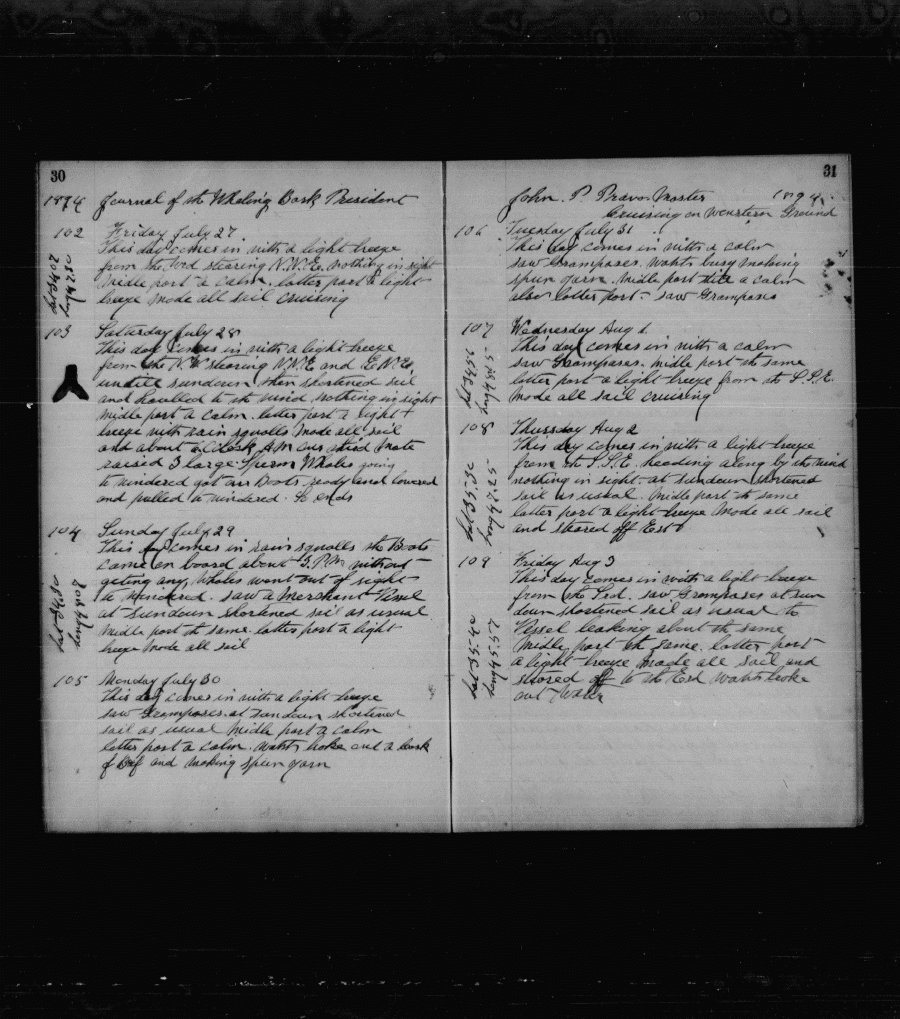 30
1894 Journal of the Whaling Bark President
102 Friday July 27
This day comes in with a light breeze
from the Wd stearing N.W.E. nothing in sight
Midle part a calm. latter part a light
breeze made all sail cruising
103 Satturday July 28
This day comes in with a light breeze
from the N.W. stearing N.N.E and E.N.E.
untill sundown then shortened sail
and haulled to the wind nothing in sight
Midle part a calm. latter part a light
breeze with rain squalls made all sail
and about Clock A.M our third mate
raised 3 large Sperm Whales going
to windered got our Boats ready and lowered
and pulled to windered. So ends
104 Sunday July 29
This day comes in rain squalls the Boats
came on board about 5. P.M. without
geting any, Whales went out of sight
to windered. saw a Merchant Vessel
at sundown shortened sail as usual
Midle part the same. latter part a light
breeze made all sail
105 Monday July 30
This day comes in with a light breeze
saw Grampuses. at sundown shortened
sail as usual Midle part a calm
latter part a calm. watch broke out a cask
of Beef and making spun yarn
31
John. P. Master 1894.
Cruising on Western Ground
106 Tuesday July 31
This day comes in with a calm
saw Grampuses. watch busy making
spun yarn. Midle part a calm
also latter part. saw Grampuses
107 Wednesday Aug 1.
This day comes in with a calm
saw Grampuses. Midle part the same
latter part a light breeze from the S.S.E.
made all sail cruising
108 Thursday Aug 2
This day comes in with a light breeze
from the S.S.E. heading along by the wind
nothing in sight. at sundown shortened
sail as usual. Midle part the same
latter part a light breeze made all sail
and steared off East
109 Friday Aug 3
This day comes in with a light breeze
from the Sod. saw Grampuses at sun
down shortened sail as usual
Vessel leaking about the same
Midle part the same. latter part
a light breeze made all sail and
steared off to the Ed watch broke
out Water